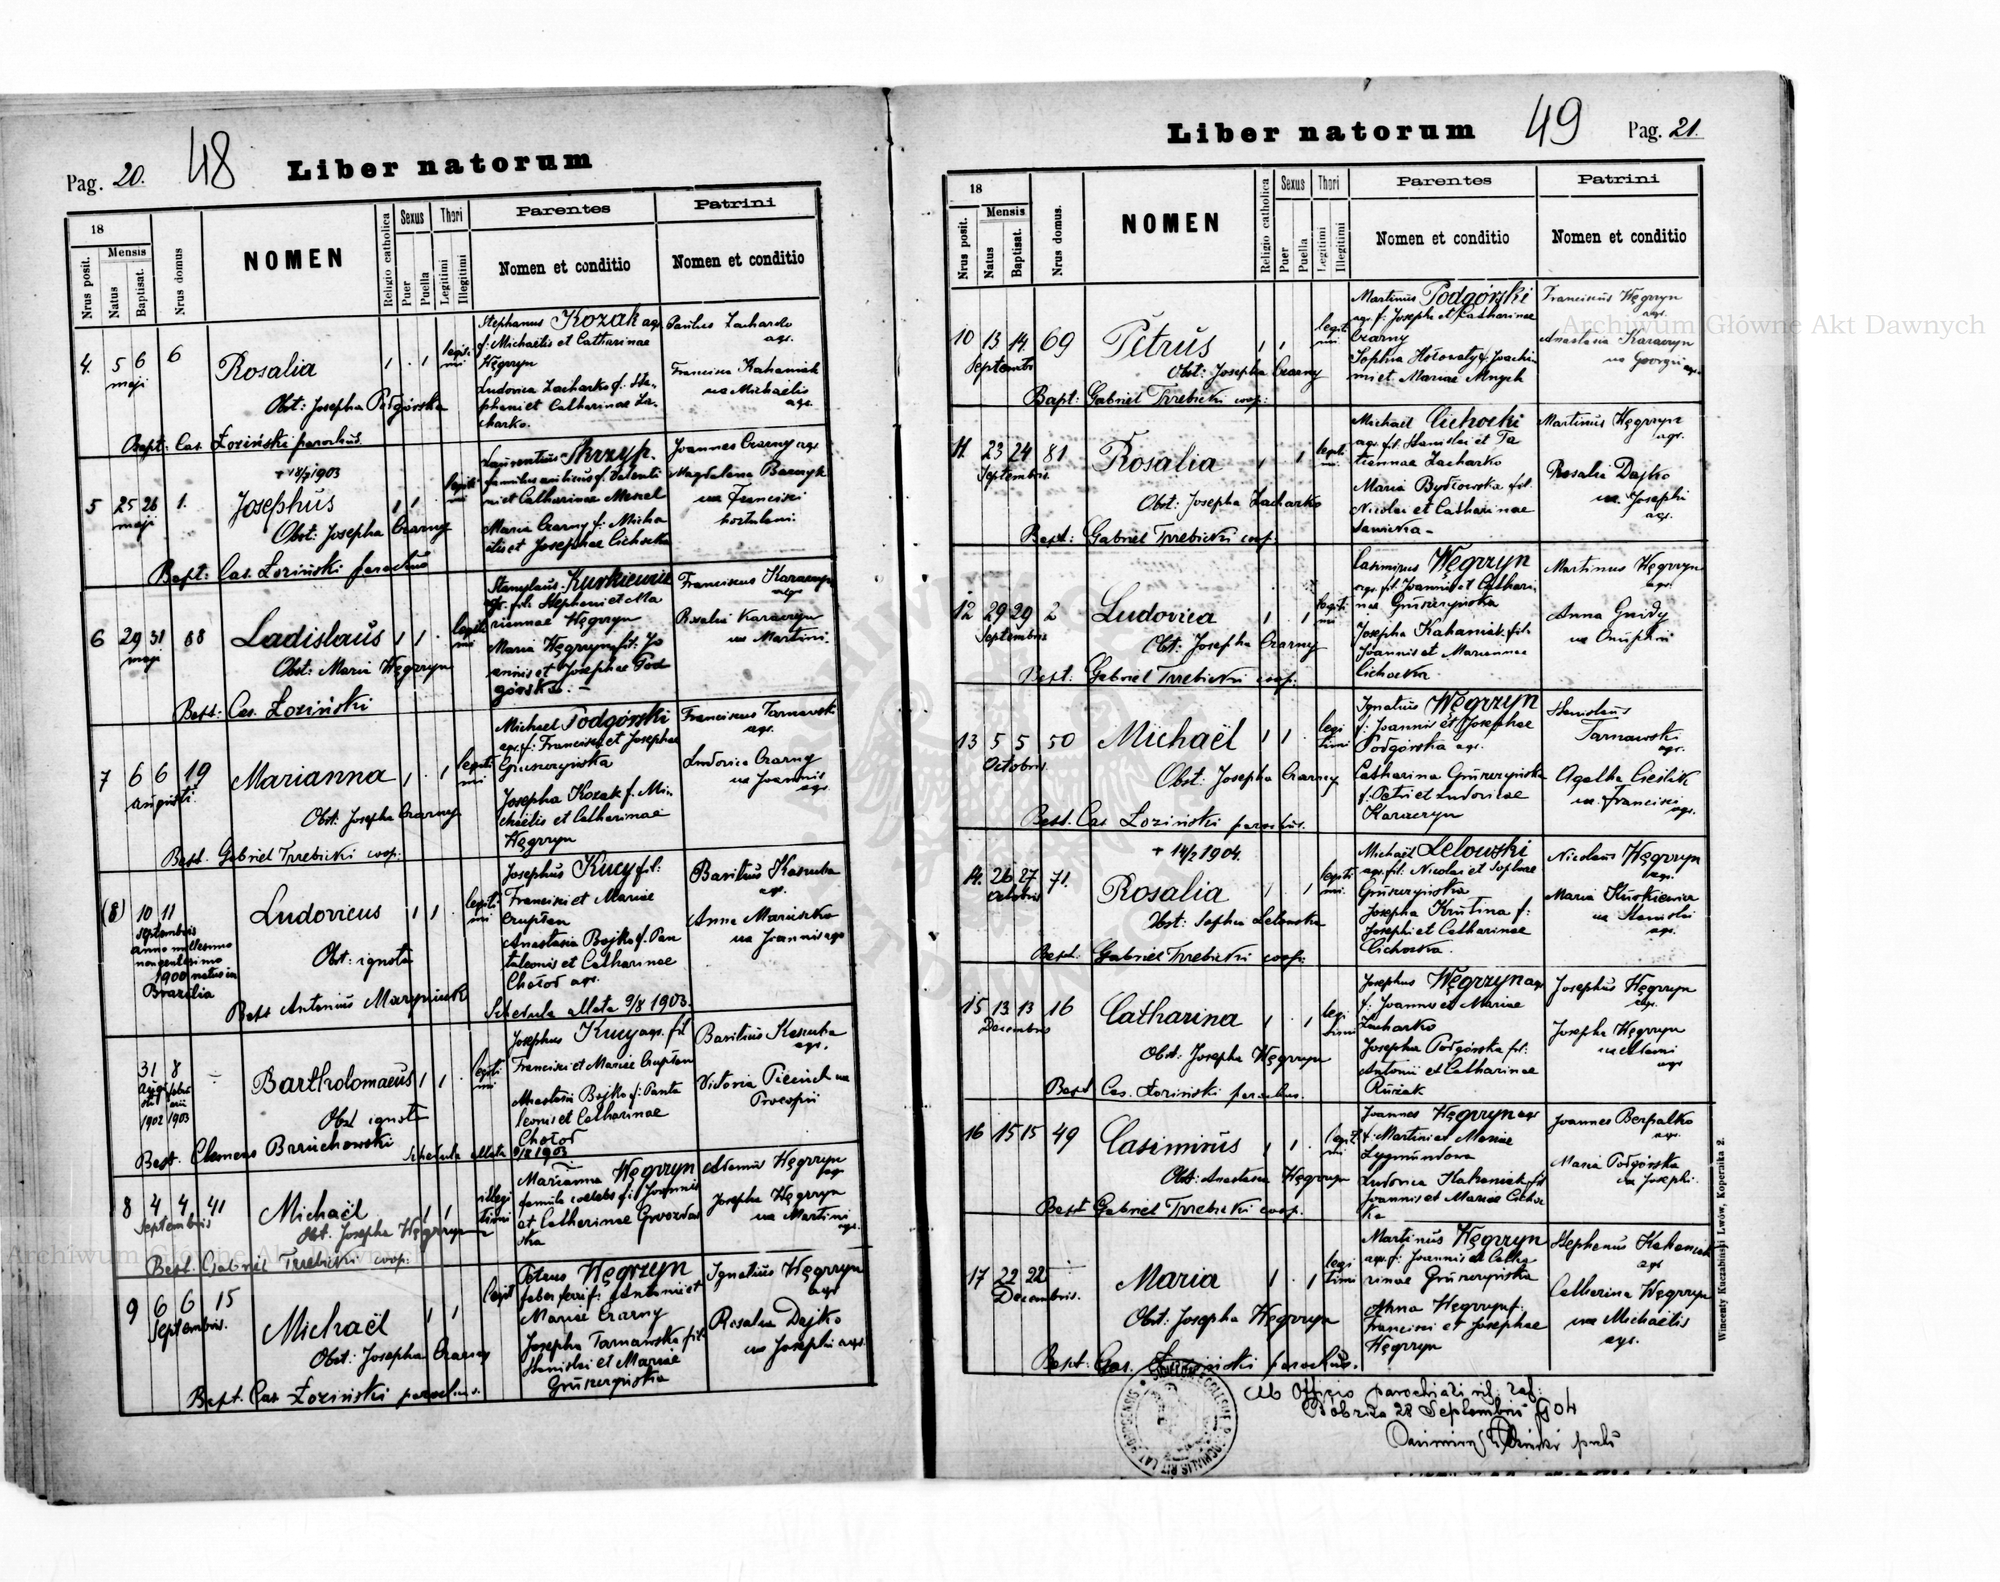 Pag. 20.
48
Liber natorum
18
Nrus posit.
Mensis
Natus
Baptisat.
Nrus domus
NOMEN
Religio catholica
Sexus
Puer
Puella
Thori
Legitimi
Illegitimi
Parentes
Nomen et conditio
Patrini
Nomen et conditio
4. 5 6 6
maji
Rosalia
legiti
mi
Obst: Josepha Podgórska
Bapt: Cas. Łoziński parochus.
Stephanus Kozak agr.
f: Michaelis et Catharinae
Węgrzyn
Ludovica Zacharko f. Ste-
phani et Catharinae Za-
charko.
Paulus Zacharko
agr.
Francisca Kahaniak
ux Michaelis
agr.
+ 18/7 1903
5 25 26 1.
maji
Josephus
legiti
mi
Obst: Josepha Czarny
Bapt: Cas. Łoziński parochus
Laurentius Skrzyp.
famulus aulicus f. Valenti
ni et Catharinae
Maria Czarny f: Micha
elis et Josephae Cichocka
Joannes Czarny agr.
Magdalena
ux Francisci
hortulani.
6 29 31 88
maji
Ladislaus
legiti
mi
Obst: Maria Węgrzyn
Bapt: Cas. Łoziński
Stanislaus Kurkiewicz
agr. fil: Stephani et Ma
riannae Węgrzyn
Maria Węgrzyn fil: Jo
annis et Josephae Pod
górska. -
Franciscus Karaczyn
agr
Rosalia Karaczyn
ux Martini.
7 6 6 19
augusti.
Marianna
legiti
mi
Obst: Josepha Czarny
Bapt. Gabriel Trzebicki coop:
Michael Podgórski
agr. f: Francisci et Josephae
Gruszczyńska
Josepha Kozak f. Mi-
chaëlis et Catharinae
Węgrzyn
Franciscus Tarnawski
agr.
Ludovica Czarny
ux Joannis
agr.
(8) 10 11
septembris
anno millesimo
nongentesimo
1900 natus in
Brazilia
Ludovicus
legiti
mi
Obst: ignota
Bapt Antonius
Josephus Kucy fil:
Francisci et Mariae
Anastasia Bojko f. Pan
taleonis et Catharinae
agr.
Schedula allata 9/8 1903.
Basilius Kaszuba
agr.
Anna
ux Joannis agr
31 8
1902 1903
Bartholomaeus
legiti
mi
Obst ignota
Bapt. Clemens
Schedula allata
1903
Josephus Kucy agr. fil
Francisci et Mariae
Anastasia Bojko f: Panta
leonis et Catharinae
Basilius Kaszuba
agr.
Victoria
Procopii
8 4 4 41
Septembris
Michaël
illegi
timi
Obst. Josepha Węgrzyn
Bapt. Gabriel Trzebicki coop:
Marianna Węgrzyn
famula coelebs f: Joannis
et Catharinae
Adamus Węgrzyn
agr
Josepha Węgrzyn
ux Martini
agr.
9 6 6 15
Septembris.
Michaël
legit
Obst: Josepha Czarny
Bapt. Cas Łoziński parochus.
Petrus Węgrzyn
faber ferri f: Antonii et
Mariae Czarny
Josepha Tarnawska fil
Stanislai et Mariae
Gruszczyńska
Ignatius Węgrzyn
agr
Rosalia Dajko
ux Josephi agr.
Liber natorum
49
Pag. 21.
18
Nrus posit.
Mensis
Natus
Baptisat.
Nrus domus.
NOMEN
Religio catholica
Sexus
Puer
Puella
Thori
Legitimi
Illegitimi
Parentes
Nomen et conditio
Patrini
Nomen et conditio
10 13 14. 69
Septembris
Petrus
legiti
mi
Obst: Josepha Czarny
Bapt: Gabriel Trzebicki coop:
Martinus Podgórski
agr. f: Josephi et Catharinae
Czarny
Sophia f. Joachi
mi et Mariae Mnych
Franciscus Węgrzyn
agr.
Anastasia Karaczyn
ux Georgii agr.
11. 23 24 81
Septembris
Rosalia
legiti
mi
Obst: Josepha Zacharko
Bapt: Gabriel Trzebicki coop:
Michaël Cichocki
agr. fil. Stanislai et Ta
tiannae Zacharko
Maria fil.
Nicolai et Catharinae
Sawicka -
Martinus Węgrzyn
agr.
Rosalia Dajko
ux. Josephi
agr.
12 29 29 2
Septembris
Ludovica
legiti
mi
Obst: Josepha Czarny
Bapt: Gabriel Trzebicki coop:
Casimirus Węgrzyn
agr. fil. Joannis et Cathari
nae Gruszczyńska
Josepha Kahaniak fil:
Joannis et Mariannae
Cichocka
Martinus Węgrzyn
agr.
Anna Gnidy
ux Onuphrii
13 5 5 50
Octobris.
Michaël
legi
timi
Obst: Josepha Czarny
Bapt. Cas. Łoziński parochus.
Ignatius Węgrzyn
f: Joannis et Josephae
Podgórska agr.
Catharina Gruszczyńska
f: Petri et Ludovicae
Karaczyn
Stanislaus
Tarnawski
agr.
Agatha Cieślik
ux. Francisci
agr.
+ 14/2 1904.
14. 26 27 71.
Octobris
Rosalia
legiti
mi.
Obst: Sophia Lelowska
Bapt. Gabriel Trzebicki coop:
Michaël Lelowski
agr. fil: Nicolai et Sophiae
Gruszczyńska
Josepha Krutina f:
Josephi et Catharinae
Cichocka.
Nicolaus Węgrzyn
agr.
Maria Kurkiewicz
ux Stanislai
agr.
15 13 13 16
Decembris
Catharina
legi
timi
Obst: Josepha Węgrzyn
Bapt Cas. Łoziński parochus.
Josephus Węgrzyn agr
f: Joannis et Mariae
Zacharko
Josepha Podgórska fil:
Antonii et Catharinae
Rużak
Josephus Węgrzyn
agr.
Josepha Węgrzyn
ux Adami
agr
16 15 15 49
Casimirus
legiti
mi
Obst: Anastasia Węgrzyn
Bapt Gabriel Trzebicki coop.
Joannes Węgrzyn agr
f: Martini et Mariae
Zygmuntowa
Ludovica Kahaniak fil
Joannis et Mariae Cichoc
ka
Joannes Berpalko
agr.
Maria Podgórska
ux Josephi.
17 22 22
Decembris.
Maria
legi
timi
Obst: Josepha Węgrzyn
Bapt: Cas. Łoziński parochus.
Martinus Węgrzyn
agr. f: Joannis et Catha
rinae Gruszczyńska
Anna Węgrzyn f:
Francisci et Josephae
Węgrzyn
Stephanus Kahaniak
agr
Catharina Węgrzyn
ux Michaëlis
agr.
Ab Officio parochiali rit: lat:
28 Septembris 1904
Wincenty Kuczabiński Lwów, Kopernika 2.
Archiwum Główne Akt Dawnych
Archiwum Główne Akt Dawnych